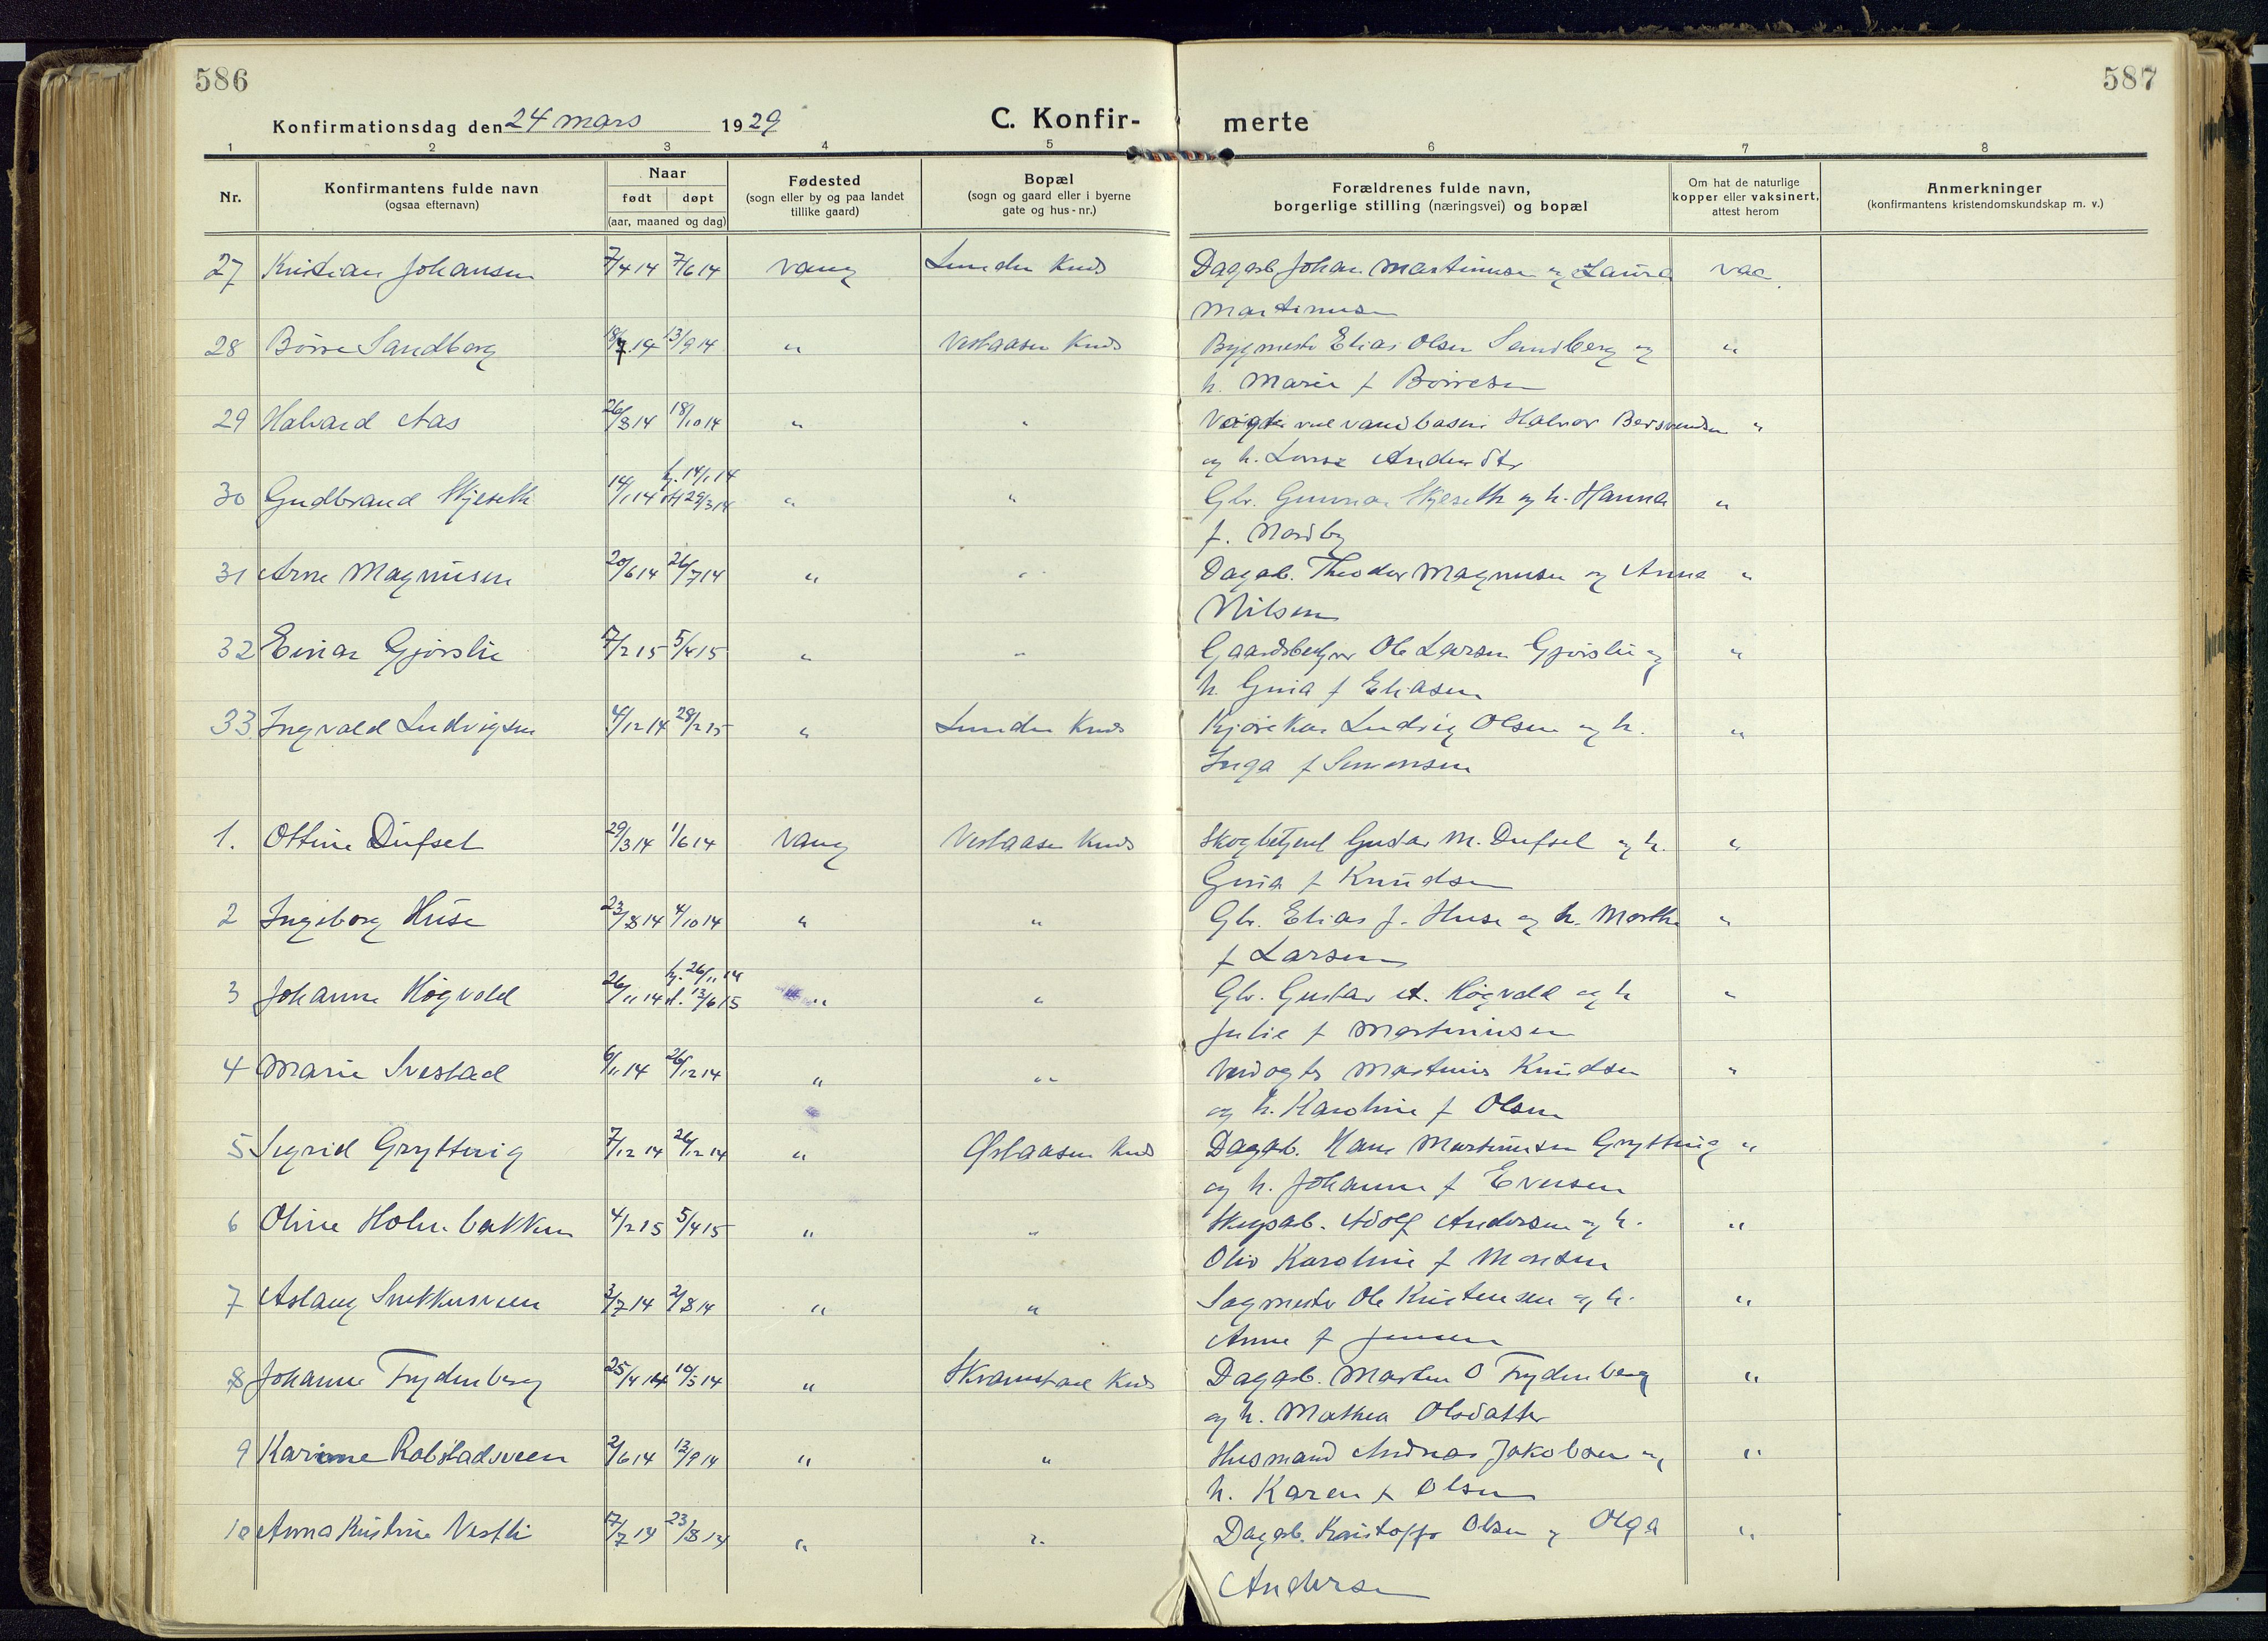 586
587
Konfirmationsdag den 24 mars 1929
C. Konfirmerte
1 2 3 4 5 6 7 8
Nr.
Konfirmantens fulde navn
(ogsaa efternavn)
Naar
født døpt
(aar, maaned og dag)
Fødested
(sogn eller by og paa landet
tillike gaard)
Bopæl
(sogn og gaard eller i byerne
gate og hus-nr.)
Forældrenes fulde navn,
borgerlige stilling (næringsvei) og bopæl
Om hat de naturlige
kopper eller vaksinert,
attest herom
Anmerkninger
(konfirmantens kristendomskundskap m. v.)
27 Kristian Johansen 7/4 14 7/6 14 Vang Lunden Kirks Dagarb. Johan Martinusen og Laura vac.
Martinusen
28 Børre Sandberg 18/7 14 13/9 14 " Vestaasen Bygmester Elias Olsen Sandberg og "
h. Marie f Børresen
29 Halvard Aas 26/8 14 18/10 14 " " Halvor Bersvendsen "
og h. Lovise Andersdtr
30 Gudbrand Skjeseth 14/1 14 hj. 14/1 14 st 29/3 14 " " Gbr. Gunnar Skjeseth og h. Hanna "
f. Nordby
31 Arne Magnusen 20/6 14 26/7 14 " " Dagarb. Theodor Magnusen og Anna "
Nilsen
32 Einar Gjørslie 7/2 15 5/4 15 " " Gaardsbestyrer Ole Larsen Gjørslie og "
h. Gina f Eliasen
33 Ingvald Ludvigsen 4/12 14 28/2 15 " Lunden Kjørekar Ludvig Olsen og h. "
Inga f Simensen
1. Ottine Dufset 29/3 14 1/6 14 Vang Vestaasen Skogbetjent Gustav M. Dufset og h. "
Gina f Knudsen
2 Ingeborg Huse 23/8 14 4/10 14 " " Gbr. Elias J. Huse og h. Marthe "
f Larsen
3 Johanne Høgvold 26/11 14 hj. 26/11 14 st. 13/6 15 " " Gbr. Gustav A. Høgvold og h "
Julie f Martinusen
4 Marie Svestad 6/11 14 26/12 14 " " Martinus Knudsen "
og h. Karoline f Olsen
5 Sigrid Gryttevig 7/12 14 26/12 14 " Østaasen Dagarb. Hans Martinusen Gryttvig "
og h. Johanne f Evensen
6 Oline Holmbakken 4/2 15 5/4 15 " " Skogsarb. Adolf Andersen og h. "
Oliv Karoline f Monsen
7 Aslaug Snekkersveen 3/7 14 2/8 14 " " Sagmester Ole Kristensen og h. "
Anne f Jensen
8 Johanne Frydenberg 25/4 14 10/5 14 " Skramstad Dagarb. Martin O Frydenberg "
og h. Mathea Olsdatter
9 Karinne Rolstadsveen 2/6 14 13/9 14 " " Husmand Andreas Jakobsen og "
h. Karen f Olsen
10 Anna Kristine Vestli 17/7 14 23/8 14 " " Dagarb. Kristoffer Olsen og Olga "
Andersen